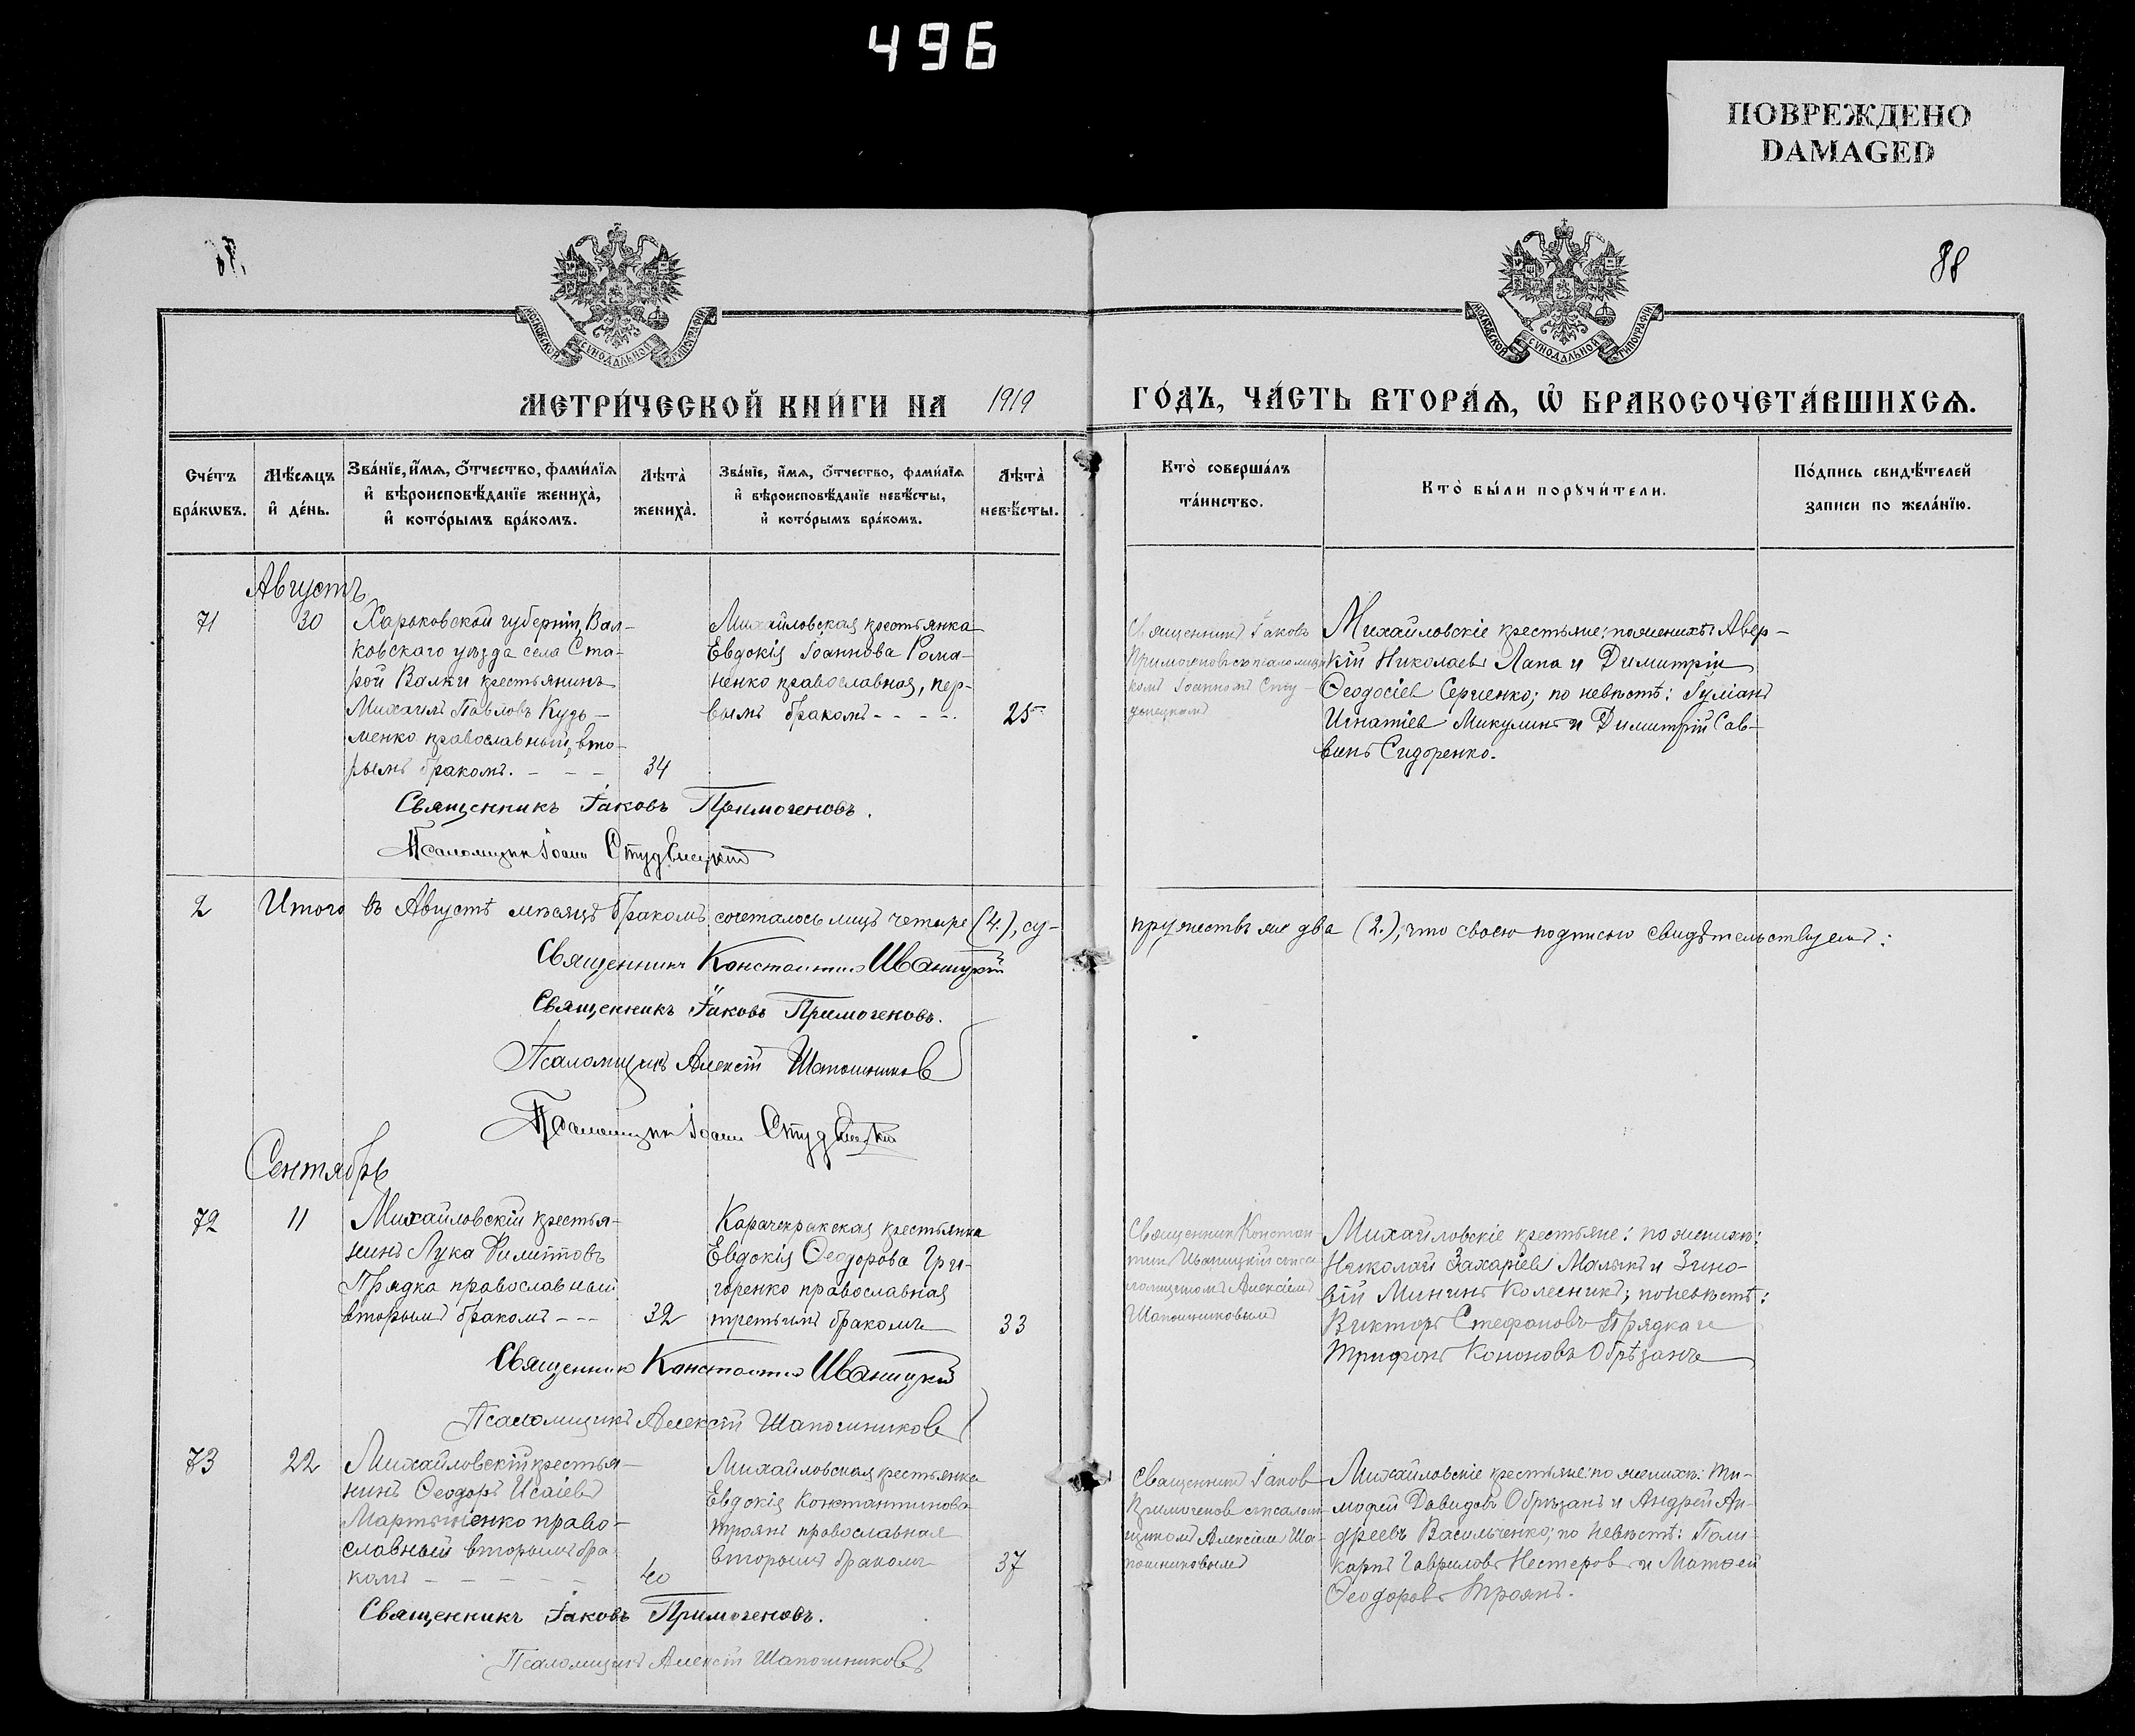 496
ПОВРЕЖДЕНО
DAMAGED
88
МОСКОВСКОЙ СѴНОДАЛЬНОЙ ТИПОГРАФІИ
МОСКОВСКОЙ СѴНОДАЛЬНОЙ ТИПОГРАФІИ
МЕТРИ́ЧЕСКОЙ КНИ́ГИ НА 1919 ГО́ДЪ, ЧА́СТЬ ВТОРА́Ѧ, Ѡ҆ БРАКОСОЧЕТА́ВШИХСѦ.
Сче́тъ
бра́кѡвъ.
Мѣ́сѧцъ
и҆ де́нь.
Зва́нїе, и҆́мѧ, ѻ҆́тчество, фами́лїѧ
и҆ вѣроисповѣ́данїе жениха̀,
и҆ кото́рымъ бра́комъ.
Лѣта̀
жениха̀.
Зва́нїе, и҆́мѧ, ѻ҆́тчество, фами́лїѧ
и҆ вѣроисповѣ́данїе невѣ́сты,
и҆ кото́рымъ бра́комъ.
Лѣта̀
невѣ́сты.
Кто̀ соверша́лъ
та́инство.
Кто̀ бы́ли порꙋчи́тели.
По́дпись свидѣ́телей
записи по жела́нїю.
Августъ
71
30
Харьковской губерніи, Вал-
ковскаго уѣзда села Ста-
рой Валки крестьянинъ
Михаилъ Павловъ Кузь-
менко православный, вто-
рымъ бракомъ. - - -
34
Михайловская крестьянка
Евдокія Іоаннова Рома-
ненко православная, пер-
вымъ бракомъ - - - -
25
Священникъ Іаковъ
Примогеновъ съ псаломщи
комъ Іоанномъ Сту-
Михайловскіе крестьяне: по женихѣ: Авер-
кій Николаевъ Лапа и Димитрій
Ѳеодосіевъ Сергіенко; по невѣстѣ: Іуліанъ
Игнатіевъ Микулинъ и Димитрій Сав-
винъ Сидоренко.
Священникъ Іаковъ Примогеновъ.
Псаломщикъ Іоаннъ Студѣнецкій
2
Итого въ Августѣ мѣсяцѣ бракомъ сочеталось лицъ четыре (4.), су-
пружествъ же два (2.), что своею подписью свидѣтельствуемъ:
Священникъ Константинъ Иваницкій
Священникъ Іаковъ Примогеновъ.
Псаломщикъ Алексій Шапошниковъ
Псаломщикъ Іоаннъ Студѣнецкій
Сентябрь
72
11
Михайловскій крестья-
нинъ Лука Филипповъ
Прядка православный
вторымъ бракомъ - - -
32
Карачекракская крестьянка
Евдокія Ѳеодорова Гри-
горенко православная
третьимъ бракомъ
33
Священникъ Констан
тинъ Иваницкій съ пса
ломщикомъ Алексіемъ
Шапошниковымъ
Михайловскіе крестьяне: по женихѣ:
Николай Захаріевъ Малякъ и Зино-
вій Мининъ Колесникъ; по невѣстѣ:
Викторъ Стефановъ Прядка и
Трифонъ Кононовъ Обрѣзанъ
Священникъ Константинъ Иваницкій
Псаломщикъ Алексій Шапошниковъ
73
22
Михайловскій крестья-
нинъ Ѳеодоръ Исаіевъ
Мартыненко право-
славный вторымъ бра-
комъ - - - - -
40
Михайловская крестьянка
Евдокія Константинова
Троянъ православная
вторымъ бракомъ
37
Священникъ Іаковъ
Примогеновъ съ псалом
щикомъ Алексіемъ Ша-
пошниковымъ
Михайловскіе крестьяне: по женихѣ: Ти-
моѳей Давидовъ Обрѣзанъ и Андрей Ан-
дреевъ Васильченко; по невѣстѣ: Поли-
карпъ Гавриловъ Нестеровъ и Матѳей
Ѳеодоровъ Троянъ.
Священникъ Іаковъ Примогеновъ.
Псаломщикъ Алексій Шапошниковъ